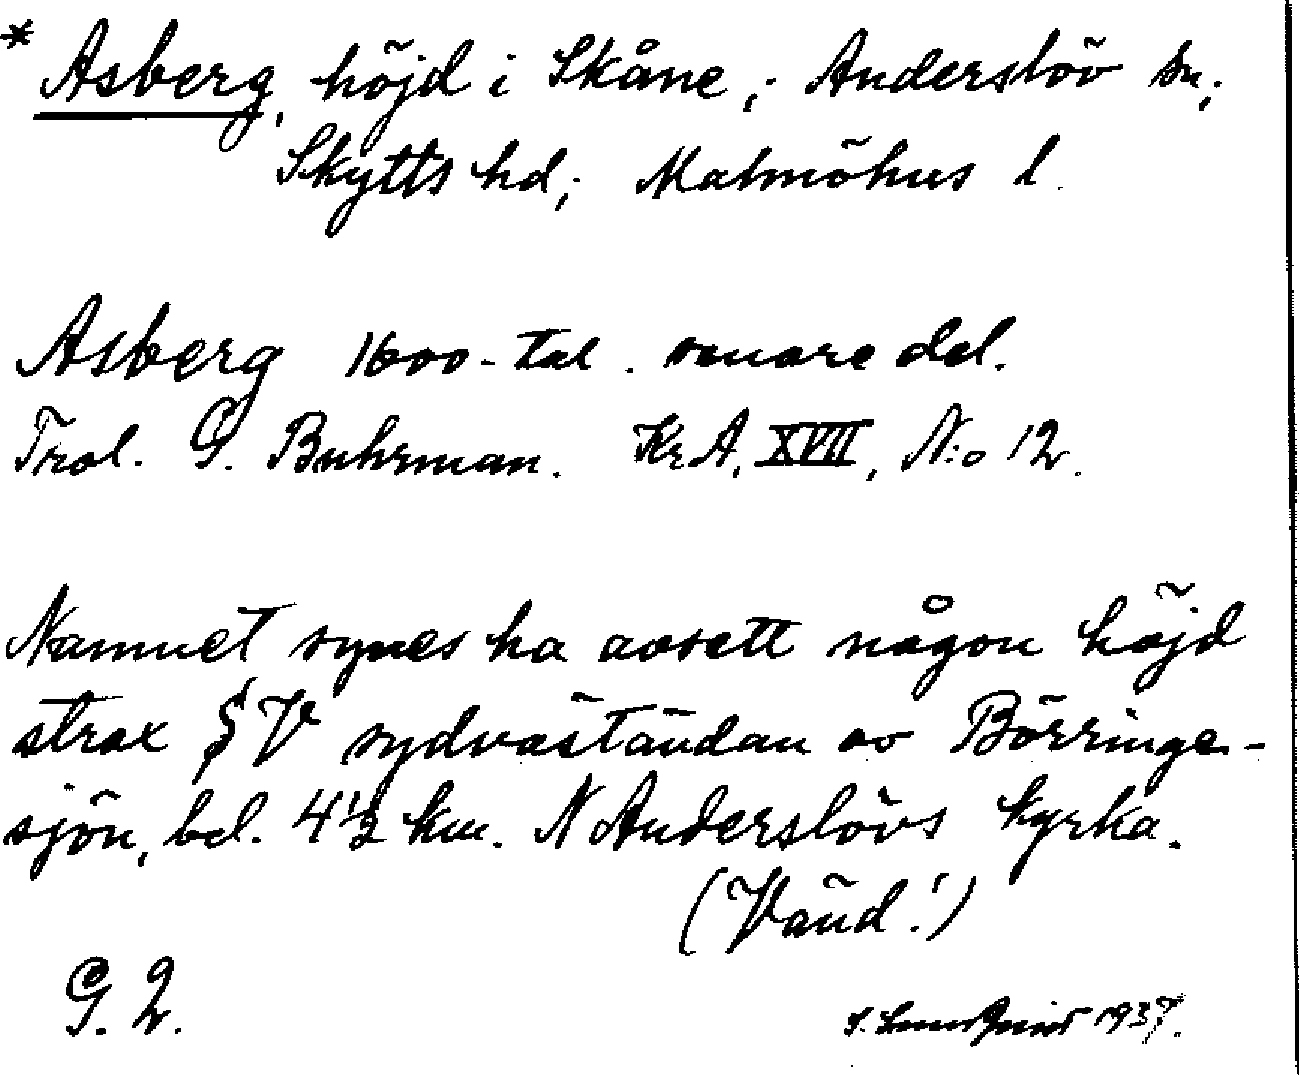 * Asberg, höjd i Skåne; Anderslöv sn;
Skytts hd; Malmöhus l.
Asberg 1600-tal. senare del.
Trol. G. Buhrman. Kr.A. XVII, N:o 12.
Namnet synes ha avsett någon höjd
strax sydvästäudan av Börringe-
sjön, bel. 4½ km. N Anderslövs kyrka.
(Vänd!)
G. 2.
1937.